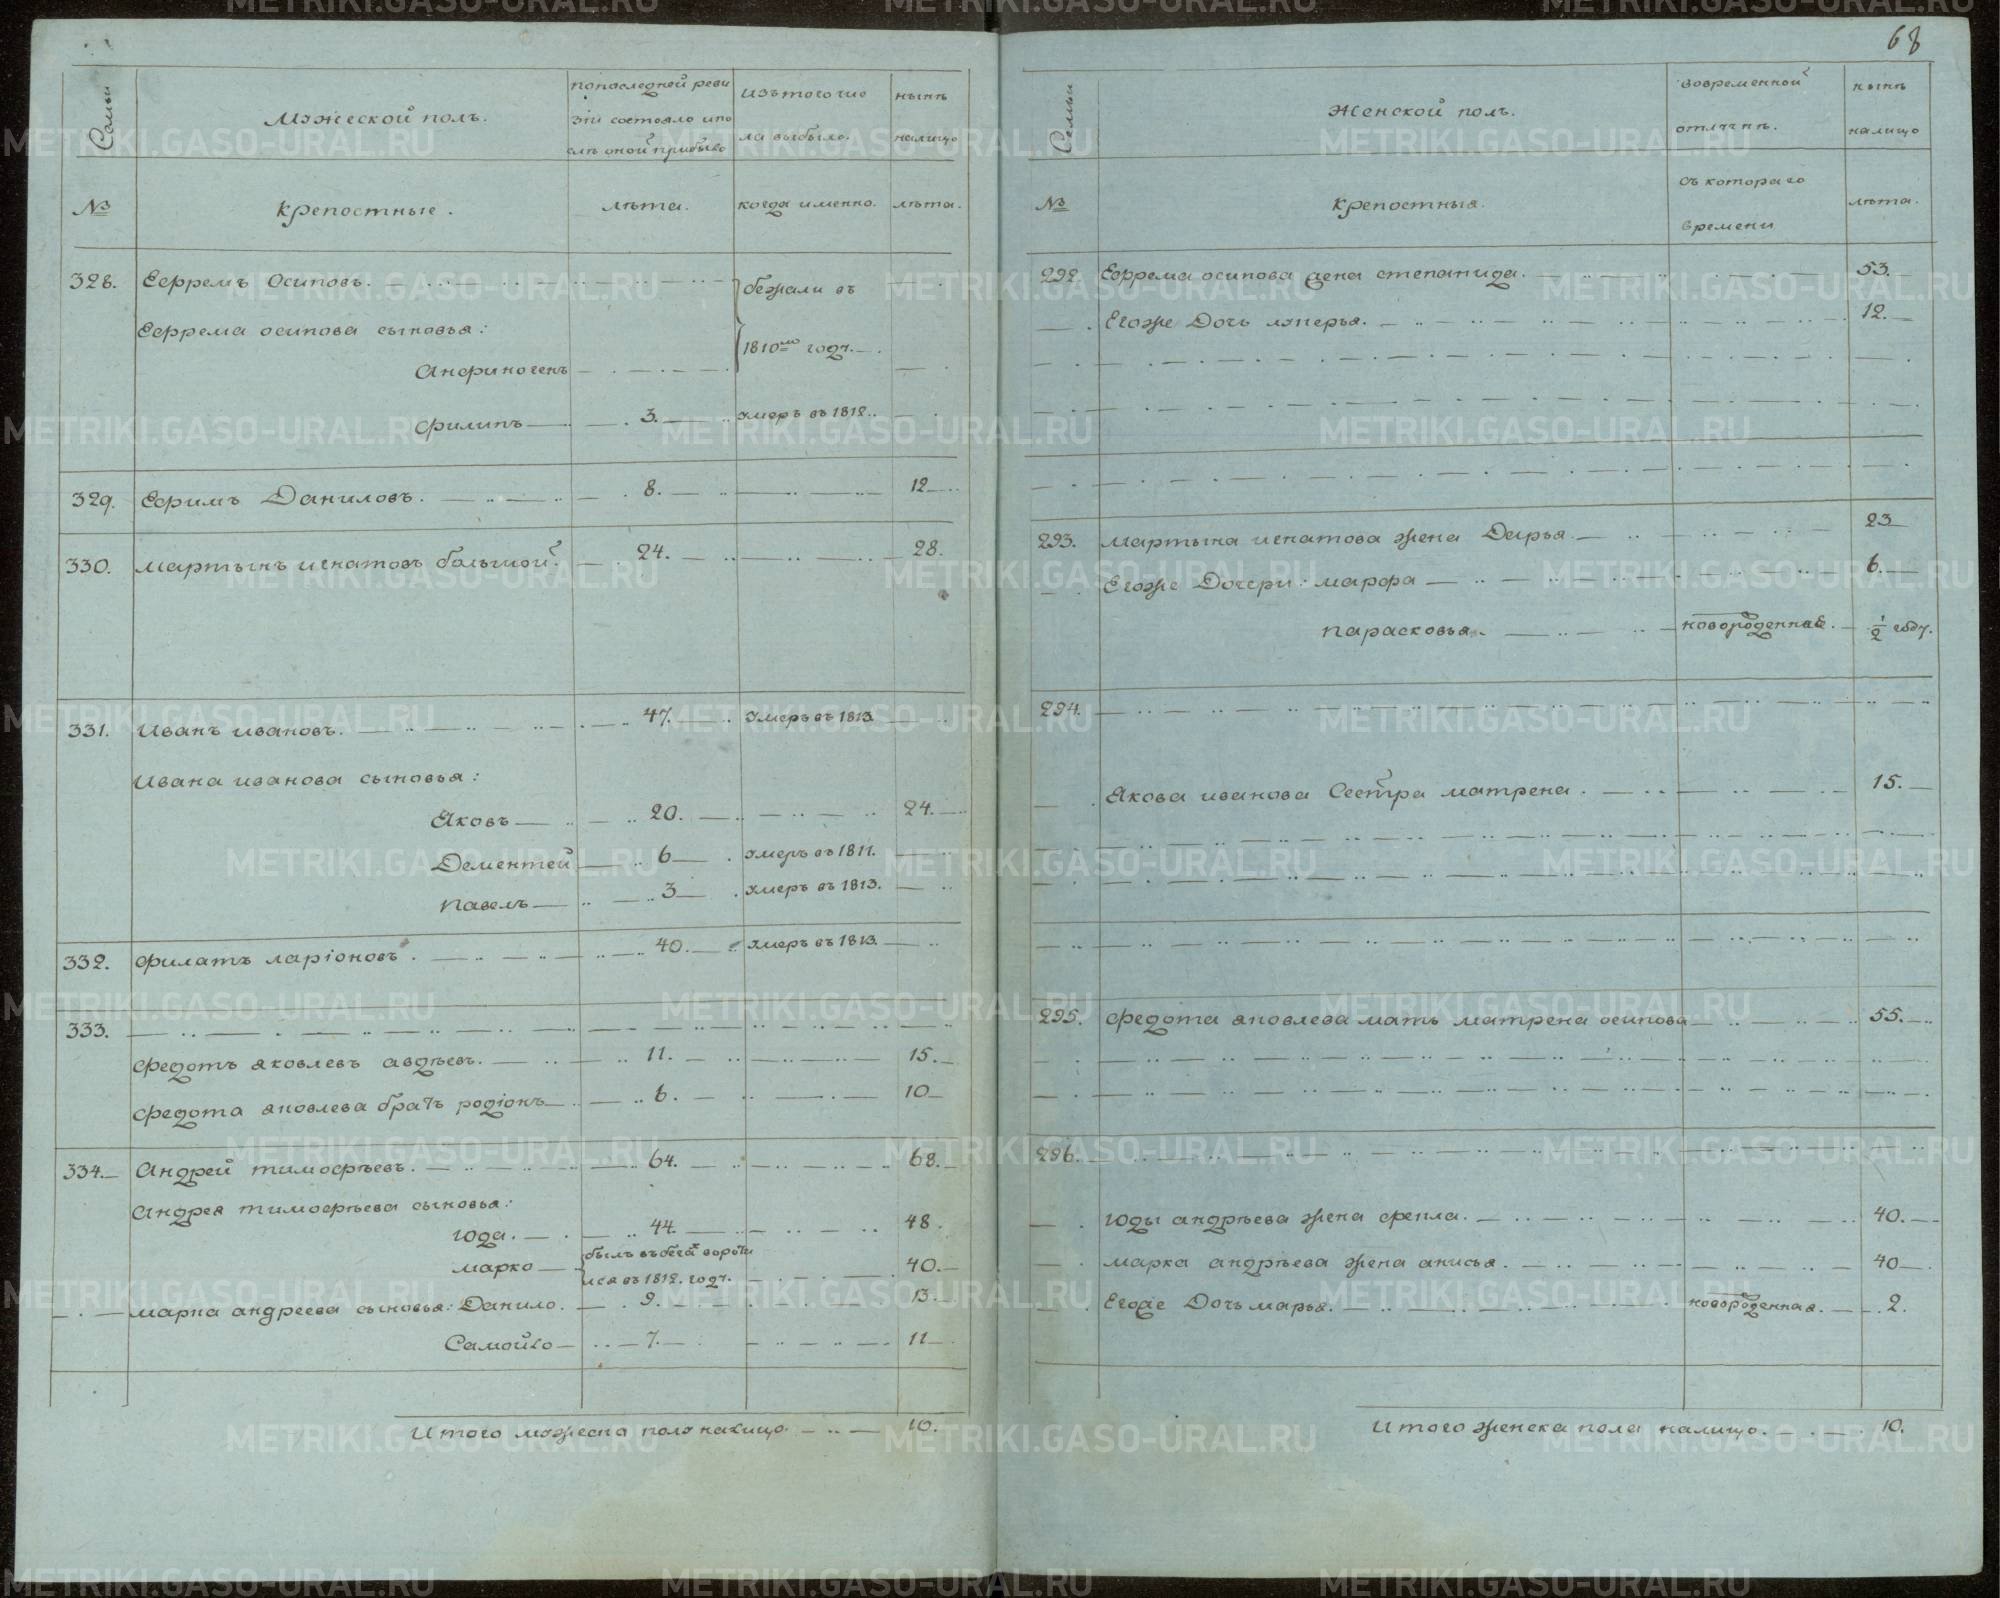 68
Семьи
Мужеской полъ.
попоследней реви
зіи состояло ипо
слѣ оной прибыло
изътогочис
ла выбыло.
нынѣ
налицо
№
Крепостные.
лѣта.
когда именно.
лѣта.
328. Ефремъ Осиповъ. бежали въ
Ефрема осипова сыновья:
1810мъ году.
Анфиногенъ
Филипъ 3. умеръ въ 1812.
329. Ефимъ Даниловъ. 8. 12
330. Мартынъ игнатовъ большой. 24. 28.
331. Иванъ ивановъ. 47. умеръ въ 1813
Ивана иванова сыновья:
Яковъ 20. 24.
Дементей 6 умеръ въ 1811.
Павелъ 3 умеръ въ 1813.
332. Филатъ ларіоновъ. 40. умеръ въ 1813.
333.
Федотъ яковлевъ авдѣевъ. 11. 15.
Федота яковлева братъ родіонъ 6. 10
334. Андрей тимофѣевъ. 64. 68.
Андрея тимофѣева сыновья:
юда. 44. 48.
марко былъ въ бегах вороти 40.
лся въ 1812. году.
марка андреева сыновья: Данило. 9. 13.
Самойло 7. 11
Итого мужеска полу налицо 10.
Семьи
Женской полъ.
вовременной
отлучкѣ.
нынѣ
налицо
№
Крепостныя.
съ котораго
времени
лѣта.
292. Ефрема осипова жена степанида. 53.
Егоже Дочь лукерья. 12.
293. Мартына игнатова жена Дарья. 23
Егоже Дочери: марфа 6.
парасковья. новорожденная. 1/2 году.
294.
Якова иванова Сестра матрена. 15.
295. Федота яковлева мать матрена осипова 55.
296.
Юды андрѣева жена фекла. 40.
марка андрѣева жена анисья. 40
Егоже Дочь марья. новорожденная. 2.
Итого женска пола налицо. 10.
METRIKI.GASO-URAL.RU